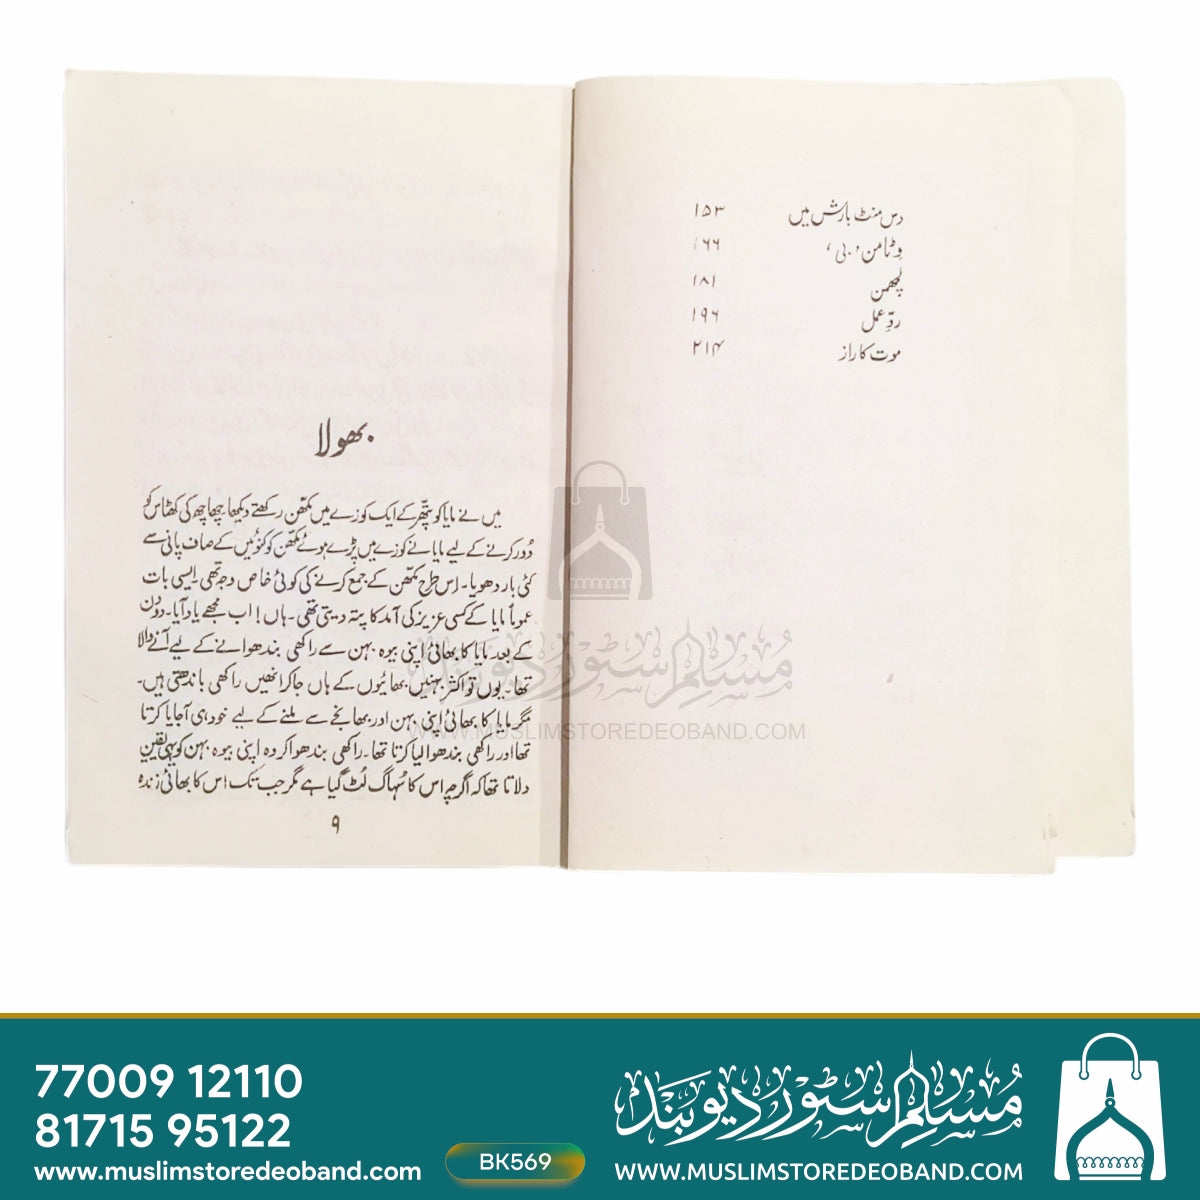 دس منٹ بارش میں ۱۵۳
وٹامن 'بی' ۱۶۶
لچھمن ۱۸۱
ردِّ عمل ۱۹۶
موت کا راز ۲۱۴
بھولا
میں نے مایا کو پتھّر کے ایک کوزے میں مکھّن رکھتے دیکھا۔ چھاچھ کی کھٹاس کو
دُور کرنے کے لیے مایا نے کوزے میں پڑے ہوئے مکھّن کو کنوئیں کے صاف پانی سے
کئی بار دھویا۔ اِس طرح مکھّن کے جمع کرنے کی کوئی خاص وجہ تھی۔ ایسی بات
عموماً مایا کے کسی عزیز کی آمد کا پتہ دیتی تھی۔ ہاں! اب مجھے یاد آیا۔ دو دن
کے بعد مایا کا بھائی اپنی بیوہ بہن سے راکھی بندھوانے کے لیے آنے والا
تھا۔ یوں تو اکثر بہنیں بھائیوں کے ہاں جاکر انھیں راکھی باندھتی ہیں۔
مگر مایا کا بھائی اپنی بہن اور بھانجے سے ملنے کے لیے خود ہی آجایا کرتا
تھا اور راکھی بندھوا لیا کرتا تھا۔ راکھی بندھوا کر وہ اپنی بیوہ بہن کو یہی یقین
دلاتا تھا کہ اگرچہ اس کا سُہاگ لُٹ گیا ہے مگر جب تک اس کا بھائی زندہ
۹
مسلم سٹور دیوبند
WWW.MUSLIMSTOREDEOBAND.COM
77009 12110
81715 95122
www.muslimstoredeoband.com
BK569
مسلم سٹور دیوبند
WWW.MUSLIMSTOREDEOBAND.COM